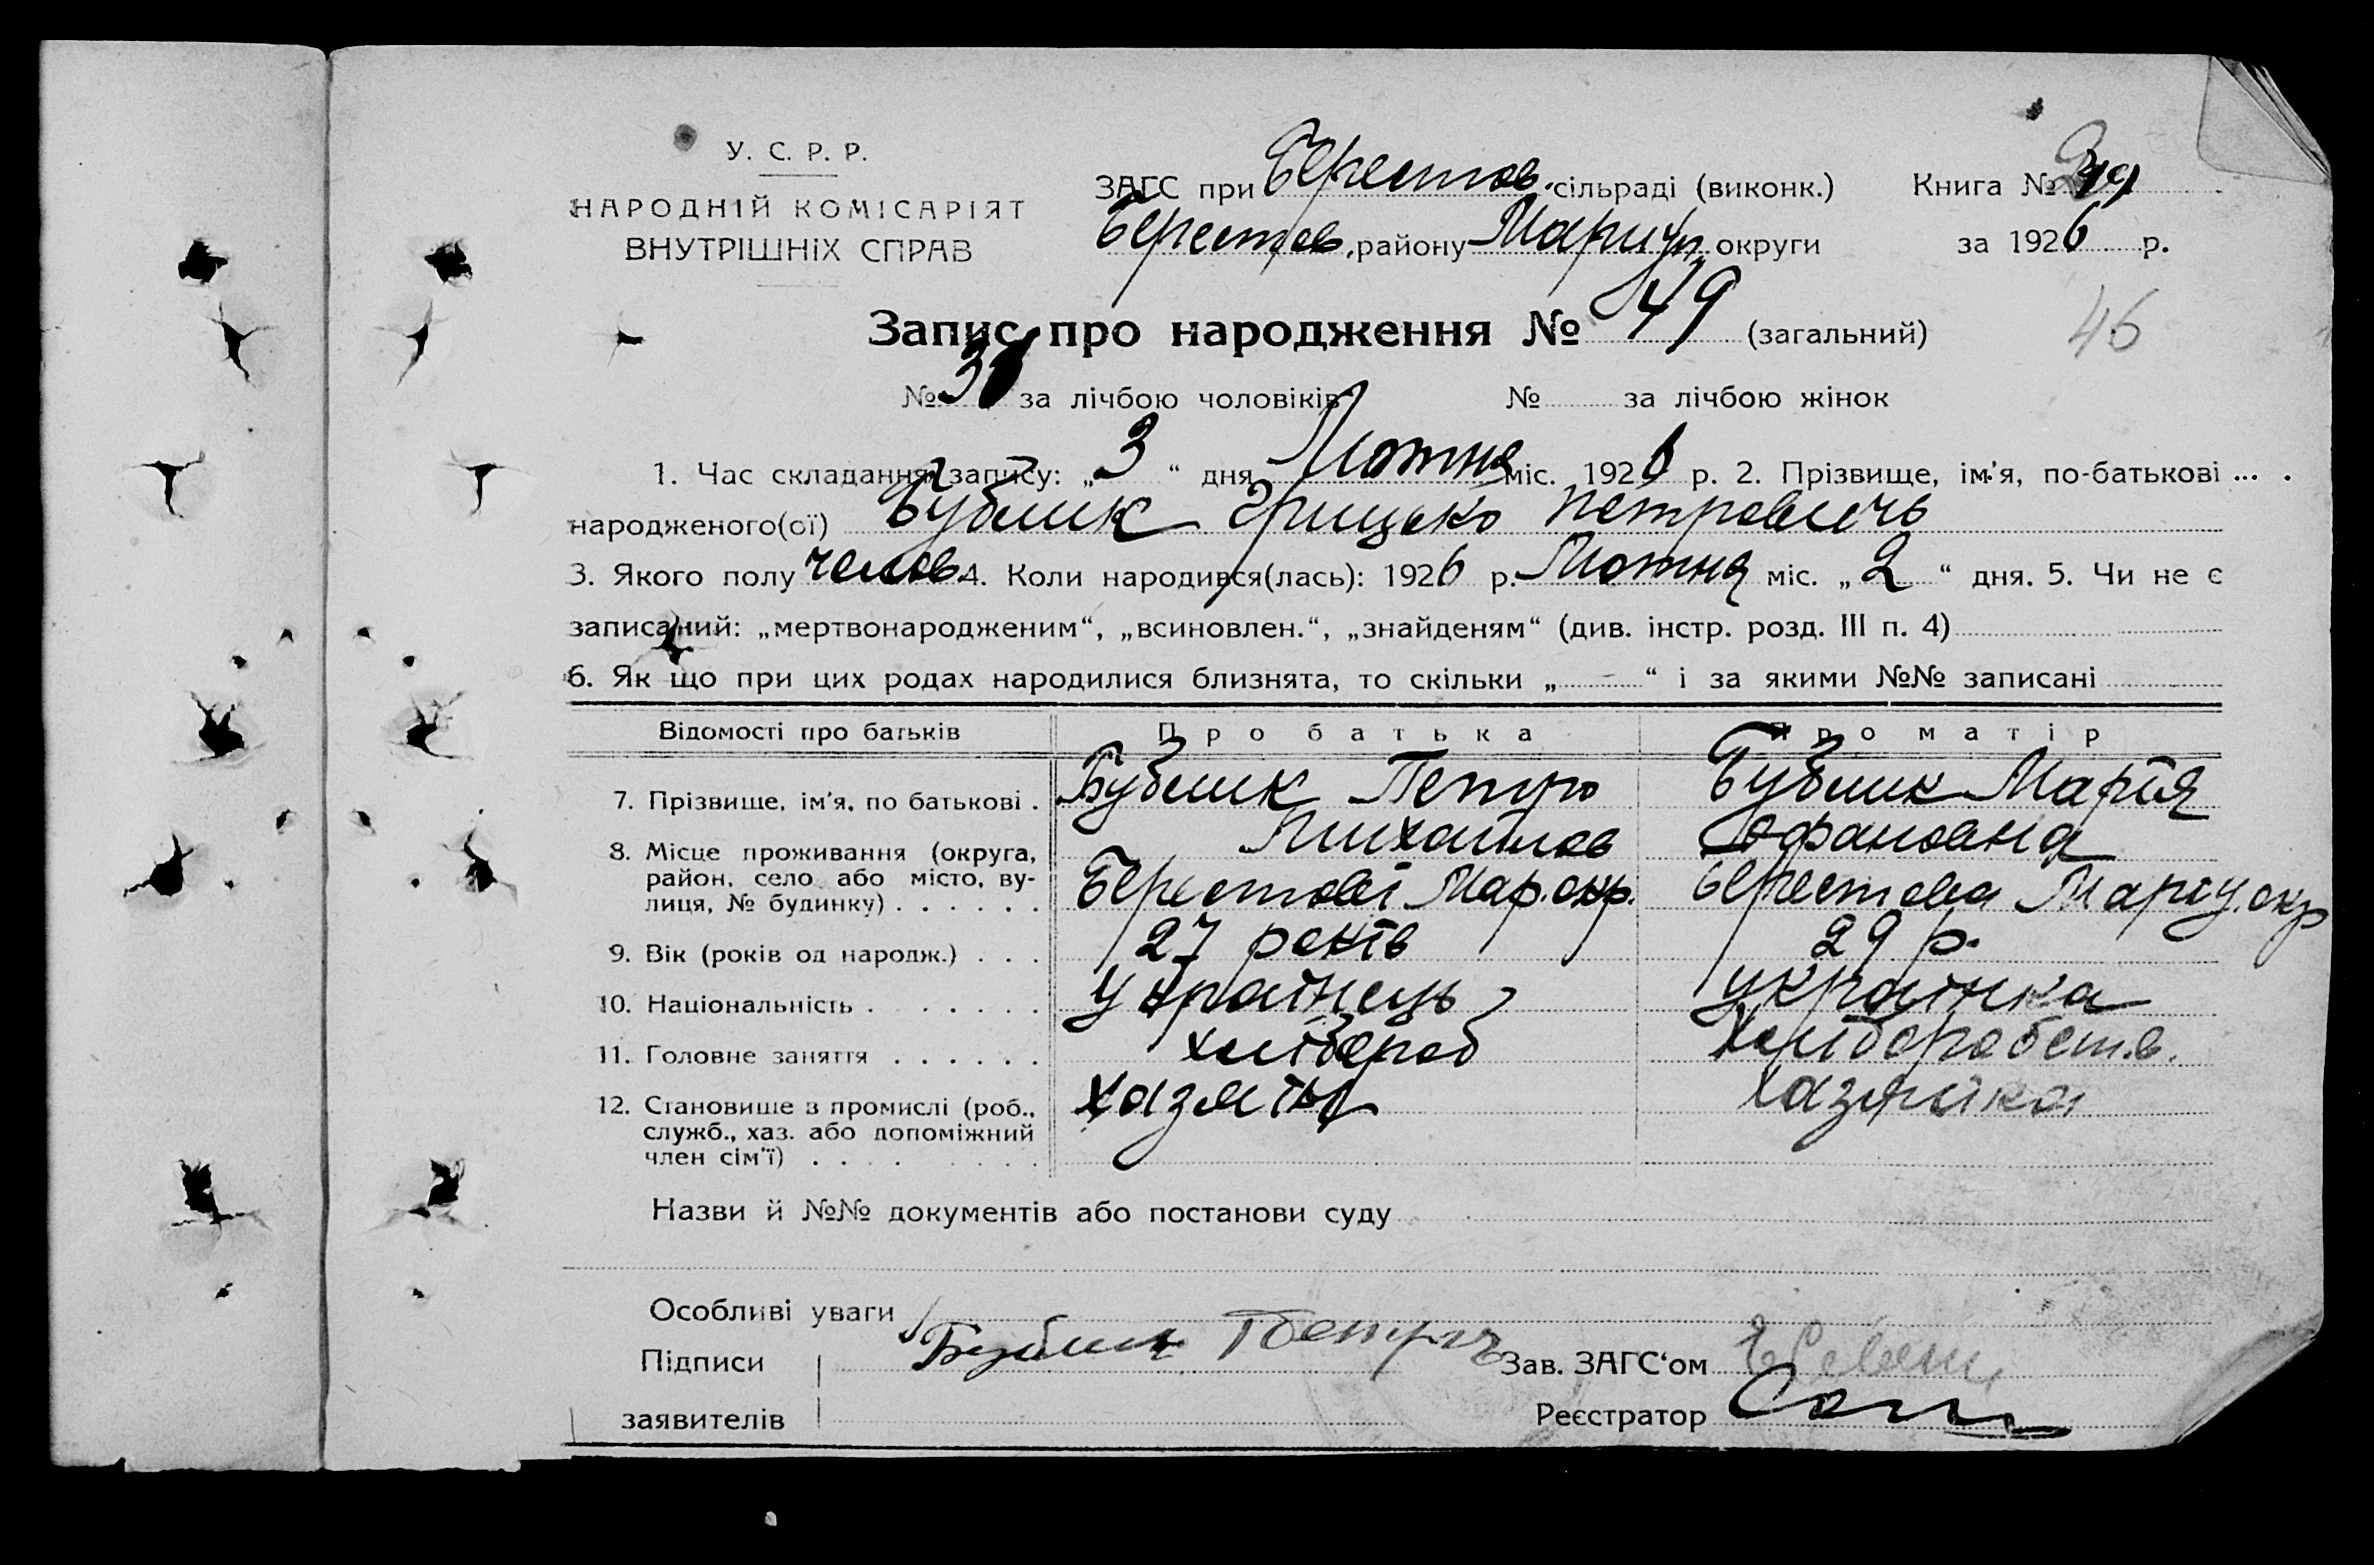 У. С. Р. Р.
НАРОДНІЙ КОМІСАРІЯТ
ВНУТРІШНІХ СПРАВ
ЗАГС при Берестов. сільраді (виконк.) Книга №
Берестов. району Мариуп. округи за 1926 р.
Запис про народження № 49 (загальний) 46
№ за лічбою чоловіків № за лічбою жінок
1. Час складання запису: „ 3 “ дня Лютня міс. 1926 р. 2. Прізвище, ім'я, по-батькові ...
народженого(ої) Бублик Грицько Петровичь
3. Якого полу челов. 4. Коли народився(лась): 1926 р. Лютня міс. „ 2 “ дня. 5. Чи не є
записаний: „мертвонародженим“, „всиновлен.“, „знайденям“ (див. інстр. розд. III п. 4)
6. Як що при цих родах народилися близнята, то скільки „ - “ і за якими №№ записані
Відомості про батьків Про батька Про матір
7. Прізвище, ім'я, по батькові . Бублик Петро Михайлов Бублик Марія
8. Місце проживання (округа,
район, село або місто, ву-
лиця, № будинку) . . . . . . Берестові Мар. окр. Берестова Маріу. окр
9. Вік (років од народж.) . . . 27 років 29 р.
10. Національність . . . . . . . Українець українка
11. Головне заняття . . . . . . хлібороб хлібороб���тв.
12. Становище в промислі (роб.,
служб., хаз. або допоміжний
член сім'ї) . . . . . . . . хазяїн хазяйка
Назви й №№ документів або постанови суду
Особливі уваги
Підписи Бублик Петро Зав. ЗАГС‘ом
заявителів Реєстратор